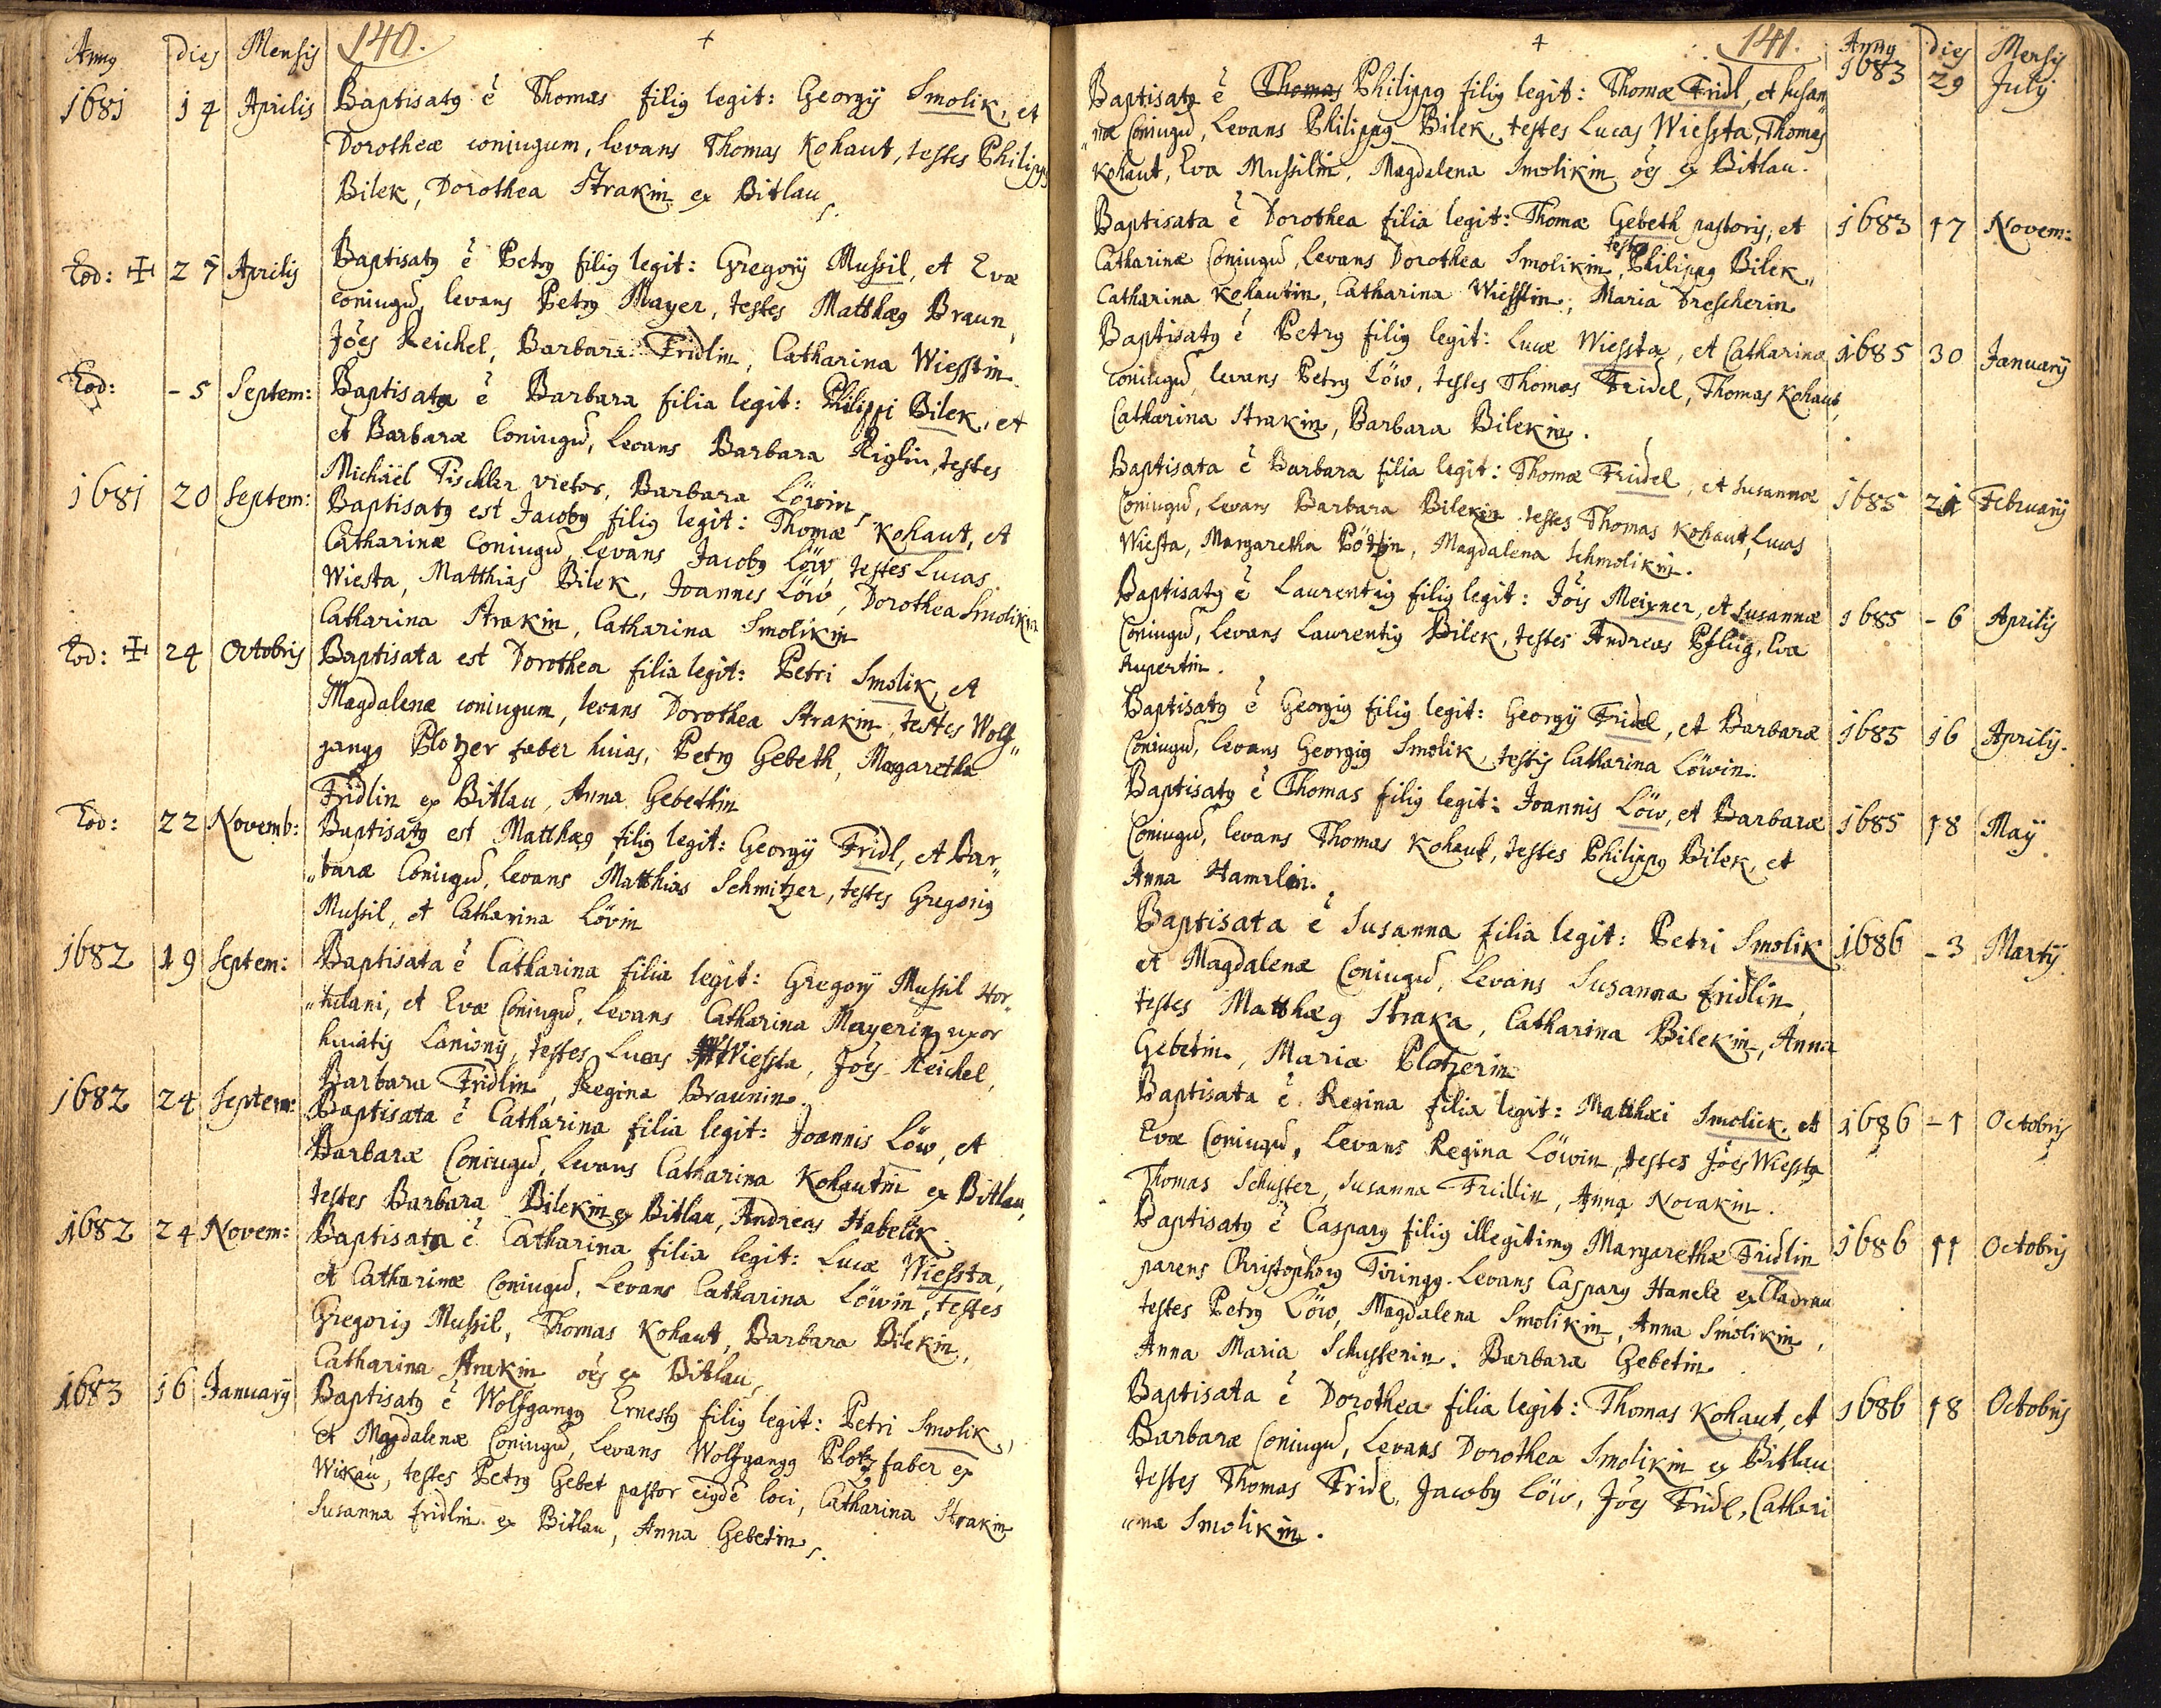 Anny dies Mensis 140. +
1681 14 Aprilis Baptisaty ē Thomas filiy legit: Georgÿ Smolik, et
Dorotheæ coniugum, levans Thomas Kohaut, testes Philippy
Bilek, Dorothea Strakin ex Bitlau
Eod: 27 Aprilis Baptisaty ē Petry filiy legit: Gregorÿ Mussil, et Evæ
coniugū, levans Petry Mayer, testes Matthæy Braun,
Jōes Reichel, Barbara Fridlin, Catharina Wiesstin.
Eod: - 5 Septem: Baptisata ē Barbara filia legit: Philippi Bilek, et
et Barbaræ Coniugū, Levans Barbara Riglin, testes
Michäel Tischler vietor, Barbara Löwin
1681 20 Septem: Baptisaty est Jacoby filiy legit: Thomæ Kohaut, et
Catharinæ Coniugū, Levans Jacoby Löw, testes Lucas
Wiesta, Matthias Bilek, Joannes Löw, Dorothea Smolikin
Catharina Strakin, Catharina Smolikin
Eod: 24 Octobris Baptisata est Dorothea filia legit: Petri Smolik, et
Magdalenæ coniugum, levans Dorothea Strakin, testes Wolf„
gangy Plotzer faber huias, Petry Gebeth, Margaretha
Fridlin ex Bitlau, Anna Gebethin
Eod: 22 Novemb: Baptisaty est Matthæy filiy legit: Georgÿ Fridl, et Bar„
„baræ Coniugū, Levans Matthias Schmitzer, testes Gregoriy
Mussil, et Catharina Lövin
1682 19 Septem: Baptisata ē Catharina filia legit: Gregorÿ Mussil Hor„
„tulani, et Evæ Coniugū, Levans Catharina Mayerin uxor
huiatis Lanionis, testes Lucas Wiessta, Jōes Reichel,
Barbara Fridlin, Regina Braunin.
1682 24 Septem: Baptisata ē Catharina filia legit: Joannis Löw, et
Barbaræ Coniugū, Levans Catharina Kohautin ex Bitlau,
testes Barbara Bilekin ex Bitlau, Andreas Habelek.
1682 24 Novem: Baptisata ē Catharina filia legit: Lucæ Wiessta,
et Catharinæ Coniugū, Levans Catharina Löwin, testes
Gregoriy Mussil, Thomas Kohaut, Barbara Bilekin,
Catharina Strakin ōes ex Bitlau
1683 16 Januarÿ Baptisaty ē Wolfgangy Ernesty filiy legit: Petri Smolik,
et Magdalenæ Coniugū, Levans Wolfgangy Plotz faber ex
Wikau, testes Petry Gebet pastor eiydē loci, Catharina Strakin
Susanna Fridlin ex Bitlau, Anna Gebetin
+ 141. Anny dies Mensis
Baptisaty ē Thomas Philippy filiy legit: Thomæ Fridl, et Susan„ 1683 29 July
„næ Coniugū, Levans Philippy Bilek, testes Lucas Wiessta, Thomas
Kohaut, Eva Mussilin, Magdalena Smolikin ōes ex Bitlau.
Baptisata ē Dorothea filia legit: Thomæ Gebeth pastoris, et 1683 17 Novem:
Catharinæ Coniugū, Levans Dorothea Smolikin, testes Philippy Bilek,
Catharina Kohautin, Catharina Wiesstin, Maria Drescherin
Baptisaty ē Petry filiy legit: Lucæ Wiessta, et Catharinæ 1685 30 Januarÿ
coniugū, levans Petry Löw, testes Thomas Fridel, Thomas Kohaut,
Catharina Strakin, Barbara Bilekin.
Baptisata ē Barbara filia legit: Thomæ Fridel, et Susannæ 1685 21 Februarÿ
Coniugū, Levans Barbara Bilekin testes Thomas Kohaut, Lucas
Wiesta, Margaretha Pöttin, Magdalena Schmolikin.
Baptisaty ē Laurentiy filiy legit: Jōis Meixner, et Susannæ 1685 - 6 Aprilis
Coniugū, Levans Laurentiy Bilek, testes Andreas Pflug, Eva
Rupertin.
Baptisaty ē Georgiy filiy legit: Georgÿ Fridel, et Barbaræ 1685 16 Aprilis.
Coniugū, Levans Georgiy Smolik, testis Catharina Löwin.
Baptisaty ē Thomas filiy legit: Joannis Löw, et Barbaræ 1685 18 Maÿ
Coniugū, levans Thomas Kohaut, testes Philippy Bilek, et
Anna Hamrlin.
Baptisata ē Susanna filia legit: Petri Smolik 1686 - 3 Martÿ
et Magdalenæ Coniugū, Levans Susanna Fridlin,
testes Matthæy Straka, Catharina Bilekin, Anna
Gebetin, Maria Plotzerin
Baptisata ē Regina filia legit: Matthæi Smolick et 1686 - 1 Octobris
Evæ Coniugū, Levans Regina Löwin, testes Jōes Wiessta
Thomas Schuster, Susanna Fridlin, Anna Novakin.
Baptisaty ē Caspary filiy illegitimy Margarethæ Fridlin 1686 11 Octobris
parens Christophory Firingy. Levans Caspary Hanele ex Cladrau
testes Petry Löw, Magdalena Smolikin, Anna Smolikin,
Anna Maria Schusterin. Barbara Gebetin
Baptisata ē Dorothea filia legit: Thomas Kohaut, et 1686 18 Octobris
Barbaræ Coniugū, Levans Dorothea Smolikin ex Bitlau
testes Thomas Fridl, Jacoby Löw, Jōes Fridl, Cathari
„na Smolikin.